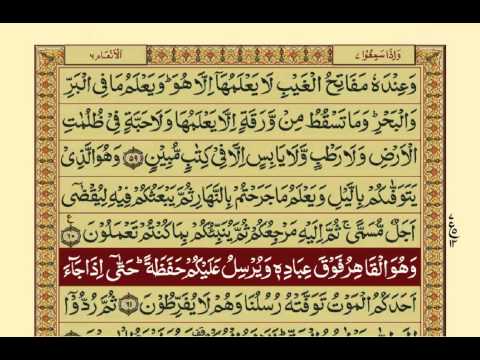 وَاِذَا سَمِعُوْا ٧
الْاَنْعَام ٦
وَعِنْدَهٗ مَفَاتِحُ الْغَيْبِ لَا يَعْلَمُهَاۤ اِلَّا هُوَ ؕ وَيَعْلَمُ مَا فِى الْبَرِّ
وَالْبَحْرِ ؕ وَمَا تَسْقُطُ مِنْ وَّرَقَةٍ اِلَّا يَعْلَمُهَا وَلَا حَبَّةٍ فِىْ ظُلُمٰتِ
الْاَرْضِ وَلَا رَطْبٍ وَّلَا يَابِسٍ اِلَّا فِىْ كِتٰبٍ مُّبِيْنٍ ۝٥٩ وَهُوَ الَّذِىْ
يَتَوَفّٰٮكُمْ بِالَّيْلِ وَيَعْلَمُ مَا جَرَحْتُمْ بِالنَّهَارِ ثُمَّ يَبْعَثُكُمْ فِيْهِ لِيُقْضٰٓى
اَجَلٌ مُّسَمًّى ۚ ثُمَّ اِلَيْهِ مَرْجِعُكُمْ ثُمَّ يُنَبِّئُكُمْ بِمَا كُنْتُمْ تَعْمَلُوْنَ ۝٦٠
وَهُوَ الْقَاهِرُ فَوْقَ عِبَادِهٖ وَيُرْسِلُ عَلَيْكُمْ حَفَظَةً ؕ حَتّٰٓى اِذَا جَآءَ
اَحَدَكُمُ الْمَوْتُ تَوَفَّتْهُ رُسُلُنَا وَهُمْ لَا يُفَرِّطُوْنَ ۝٦١ ثُمَّ رُدُّوْۤا